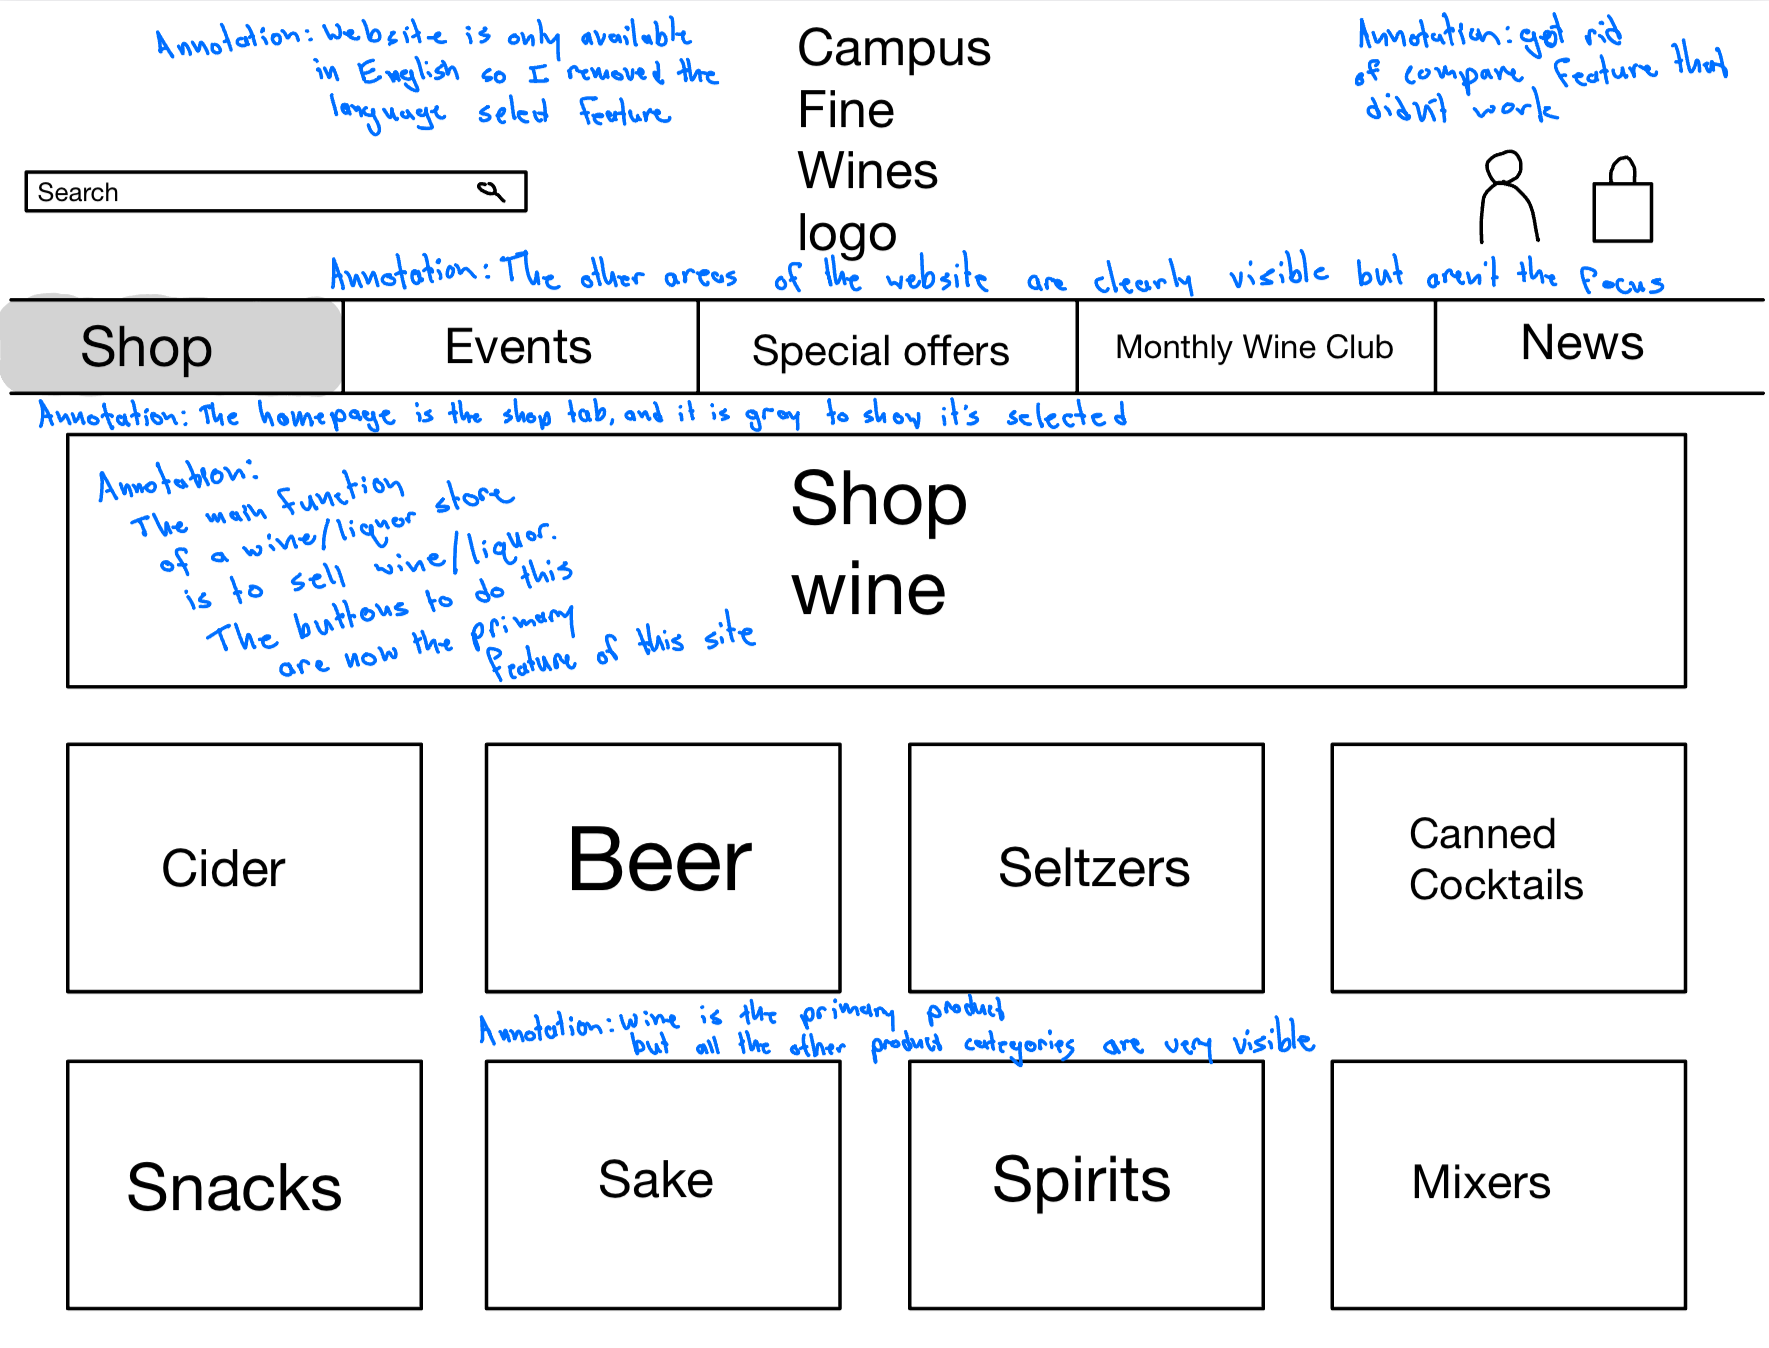 Annotation: Website is only available
in English so I removed the
language select feature
Campus
Fine
Wines
logo
Annotation: got rid
of compare feature that
didn't work
Search
Annotation: The other areas of the website are clearly visible but aren't the focus
Shop
Events
Special offers
Monthly Wine Club
News
Annotation: The homepage is the shop tab, and it is gray to show it's selected
Annotation:
The main function
of a wine/liquor store
is to sell wine/liquor.
The buttons to do this
are now the primary
feature of this site
Shop
wine
Cider
Beer
Seltzers
Canned
Cocktails
Annotation: wine is the primary product
but all the other product categories are very visible
Snacks
Sake
Spirits
Mixers